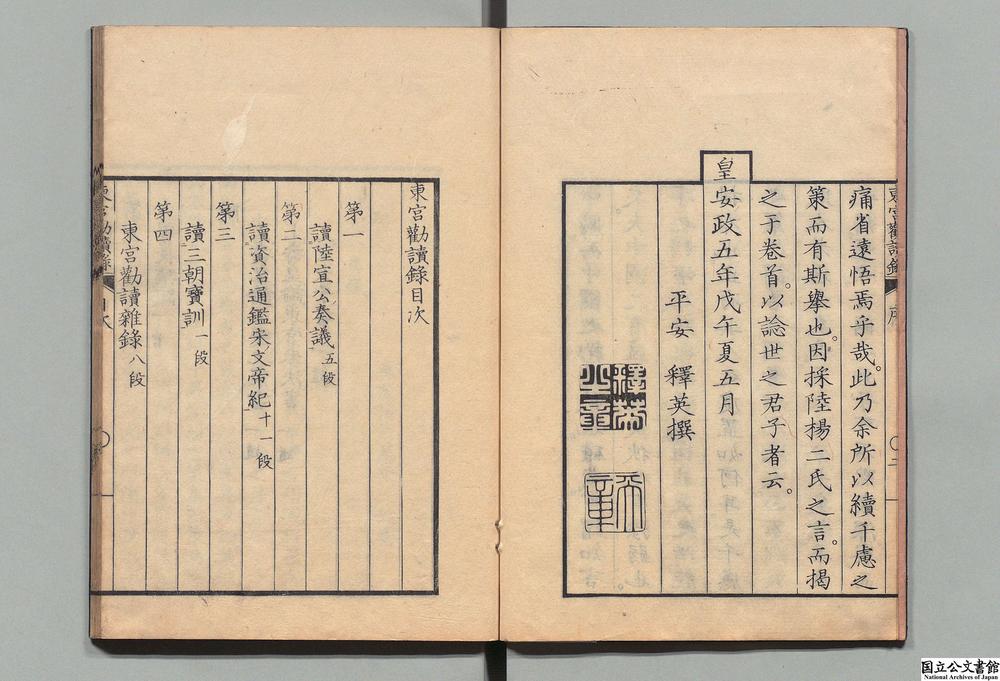 痛省遠悟焉乎哉。此乃余所以續千慮之
策而有斯擧也。因採陸楊二氏之言。而揭
之于卷首。以諗世之君子者云。
皇安政五年戊午夏五月
平安 釋英撰
東宮勸讀錄目次
第一
讀陸宣公奏議 五段
第二
讀資治通鑑宋文帝紀 十一段
第三
讀三朝寶訓 一段
第四
東宮勸讀雜錄 八段
国立公文書館
National Archives of Japan